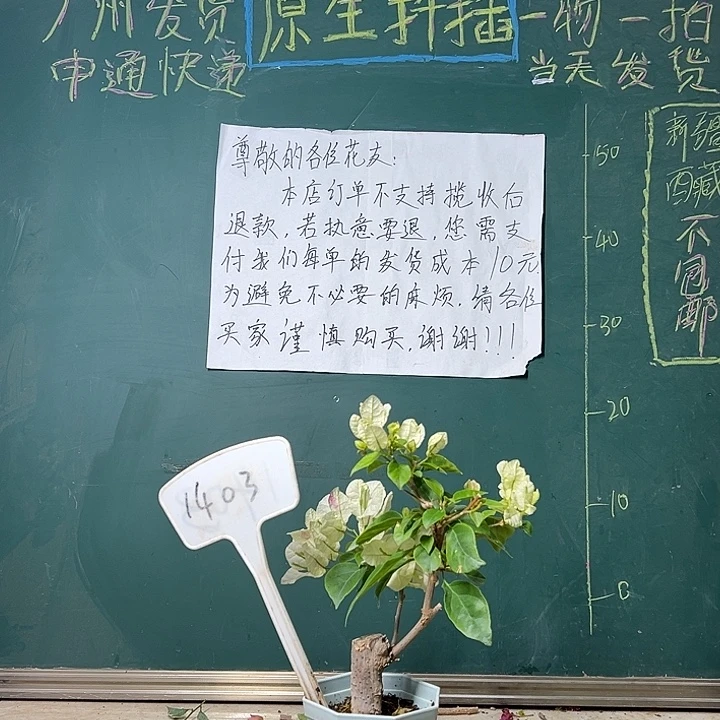 广州发货
原生扦插
一物一拍
申通快递
当天发货
尊敬的各位花友:
本店订单不支持揽收后
退款,若执意要退,您需支
付我们每单的发货成本10元
为避免不必要的麻烦.请各位
买家谨慎购买,谢谢!!!
50
40
30
20
10
0
新疆
西藏
不包邮
1403